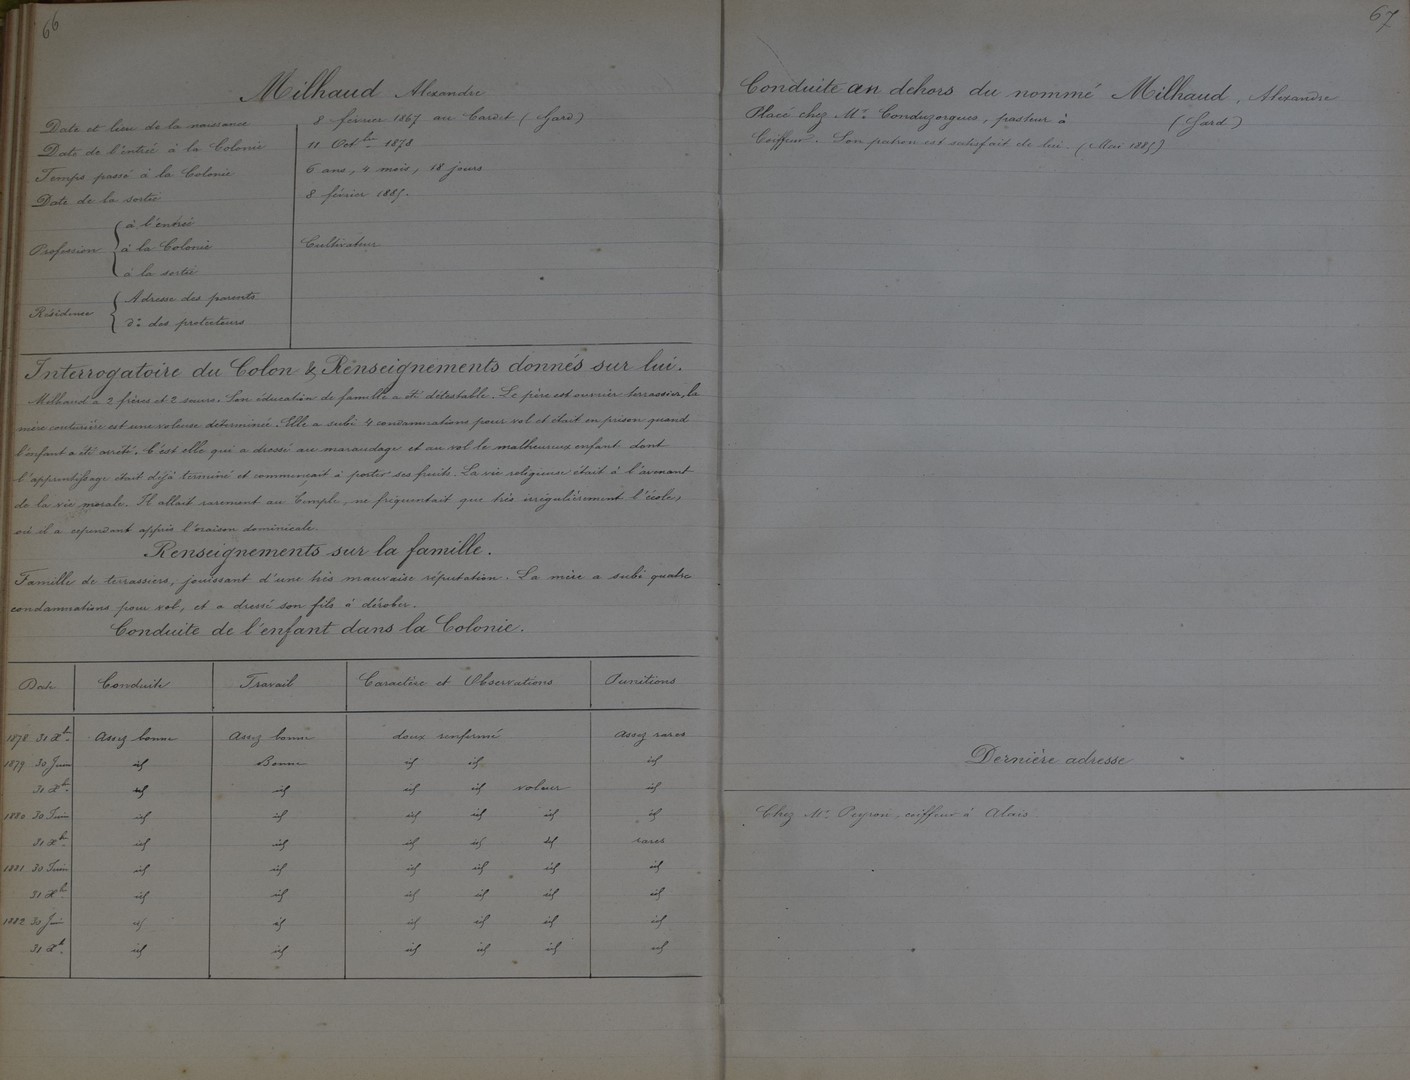 66
Milhaud Alexandre
Date et lieu de la naissance 8 février 1867 au Cardet (Gard)
Date de l'entrée à la Colonie 11 Octbre 1878
Temps passé à la Colonie 6 ans, 4 mois, 18 jours
Date de la sortie 8 février 1885.
Profession { à l'entrée
à la Colonie Cultivateur
à la sortie
Résidence { Adresse des parents
do des protecteurs
Interrogatoire du Colon & Renseignements donnés sur lui.
Milhaud a 2 frères et 2 sœurs. Son éducation de famille a été détestable. Le père est ouvrier terrassier, la
mère couturière est une voleuse déterminée. Elle a subi 4 condamnations pour vol et était en prison quand
l'enfant a été arrêté. C'est elle qui a dressé au maraudage et au vol le malheureux enfant dont
l'apprentissage était déjà terminé et commençait à porter ses fruits. La vie religieuse était à l'avenant
de la vie morale. Il allait rarement au Temple, ne fréquentait que très irrégulièrement l'école,
où il a cependant appris l'oraison dominicale.
Renseignements sur la famille.
Famille de terrassiers, jouissant d'une très mauvaise réputation. La mère a subi quatre
condamnations pour vol, et a dressé son fils à dérober.
Conduite de l'enfant dans la Colonie.
Date Conduite Travail Caractère et Observations Punitions
1878 31 Xbre Assez bonne Assez bonne doux renfermé Assez rares
1879 30 Juin id Bonne id id id
31 Xb. id id id id voleur id
1880 30 Juin id id id id id id
31 Xb. id id id id id rares
1881 30 Juin id id id id id id
31 Xb. id id id id id id
1882 30 Juin id id id id id id
31 Xb. id id id id id id
67
Conduite au dehors du nommé Milhaud, Alexandre
Placé chez Mr Conduzorgues, pasteur à (Gard)
Coiffeur. Son patron est satisfait de lui. (Mai 1885)
Dernière adresse
Chez Mr Peyron coiffeur à Alais